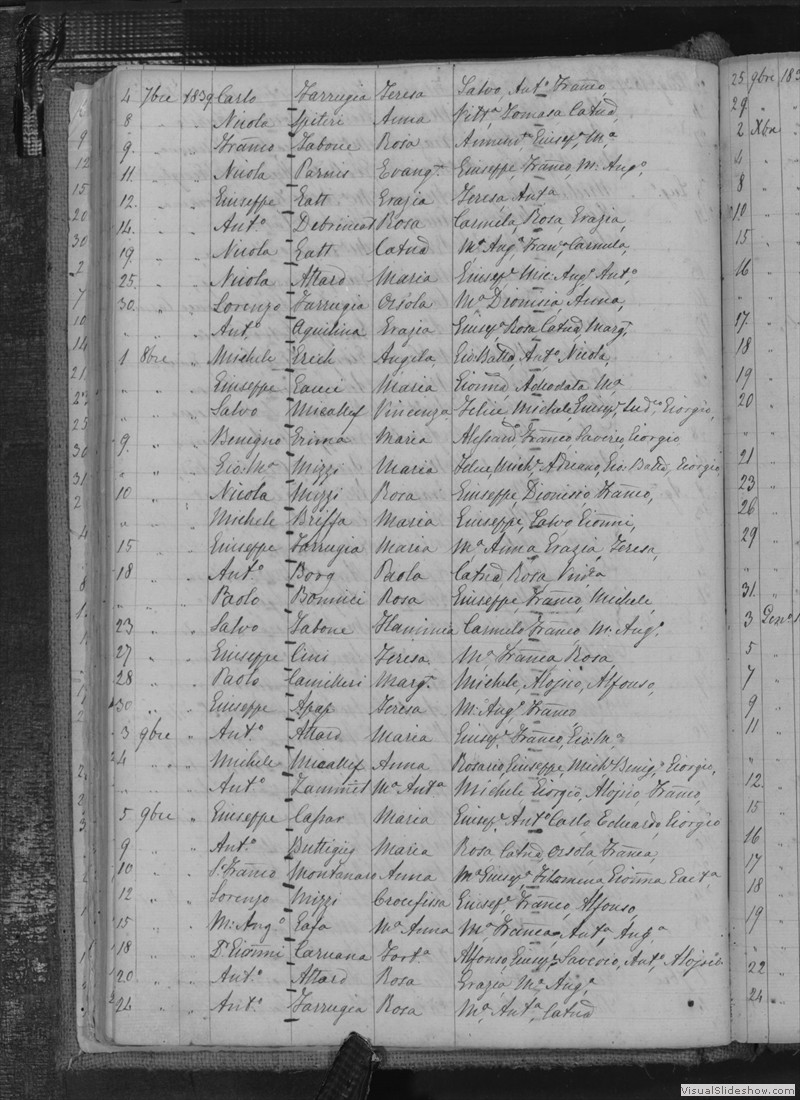 4 7bre 1839 Carlo Farrugia Teresa Salvo, Ant.o Franco,
8 " " Nicola Spiteri Anna Vitt.a Tomasa Catnd,
9. " " Franco Zabone Rosa Annunt.a Giusep.e M.a
11. " " Nicola Parnis Evang.ta Giuseppe, Franco, M: Ang.o,
12. " " Giuseppe Gatt Grazia Teresa Ant.a
14. " " Ant.o Debrincat Rosa Carmela, Rosa, Grazia,
19. " " Nicola Gatt Catnd M.a Ang.a Fran.ca Carmela,
25. " " Nicola Attard Maria Giusep.e Mic: Ang.o Ant.o,
30. " " Lorenzo Farrugia Orsola M.a Dionisia Anna,
" " " Ant.o Aquilina Grazia Giusep.a Rosa Catnd, Marg.ta
1 8bre " Michele Grech Angela Gio: Batta, Ant.o Nicola,
" " " Giuseppe Gauci Maria Gionna, Adeodata, M.a
" " " Salvo Micallef Vincenza Felice, Michele, Giusep.e Lud.co Giorgio,
9. " " Benigno Grima Maria Alessand.o Franco Saverio, Giorgio
" " " Gio: M.a Mizzi Maria Felice, Mich.e Adriano, Gio: Batta, Giorgio
10 " " Nicola Mizzi Rosa Giuseppe, Dionisio Franco,
" " " Michele Briffa Maria Giuseppe, Salvo Gionni,
15 " " Giuseppe Farrugia Maria M.a Anna Grazia, Teresa,
18 " " Ant.o Borg Paola Catnd Rosa
" " " Paolo Bonnici Rosa Giuseppe Franco, Michele,
23 " " Salvo Zabone Flaminia Carmelo, Franco M: Ang.o
27 " " Giuseppe Cini Teresa M.a Franca Rosa
28 " " Paolo Camilleri Marg.ta Michele, Alojsio, Alfonso,
30 " " Giuseppe Apap Teresa M: Ang.o Franco
3 9bre " Ant.o Attard Maria Giusep.e Franco, Gio: M.a
4 " " Michele Micallef Anna Rosario, Giuseppe, Mich.e Benig.o Giorgio,
" " " Ant.o Zammit M.a Ant.a Michele Giorgio, Alojsio, Franco,
5 9bre " Giuseppe Cassar Maria Giusep.e Ant.o Carlo, Eduardo Giorgio
9 " " Ant.o Buttigieg Maria Rosa Catnd Orsola Franca,
10 " " S. Franco Montanaro Anna M.a Giusep.a Filomena Gionna Gaet.a
12 " " Lorenzo Mizzi Crocefissa Giusep.e Franco, Alfonso,
15 " " M: Ang.o Zafa M.a Anna M.a Franca, Ant.a, Ang.a
18 " " Dr Gionni Caruana Fort.a Alfonso, Giusep.e Saverio, Ant.o, Alojsio
20 " " Ant.o Attard Rosa Grazia M.a Ang.a
24 " " Ant.o Farrugia Rosa M.a Ant.a Catnd
25 9bre 183
29 " "
2 Xbre
4 "
8 "
10 "
15 "
16 "
17. "
18 "
19 "
20 "
21 "
23 "
26 "
29 "
31. "
3
5 "
7 "
9 "
11 "
12. "
15 "
16 "
17 "
18 "
19 "
22 "
24 "
VisualSlideshow.com